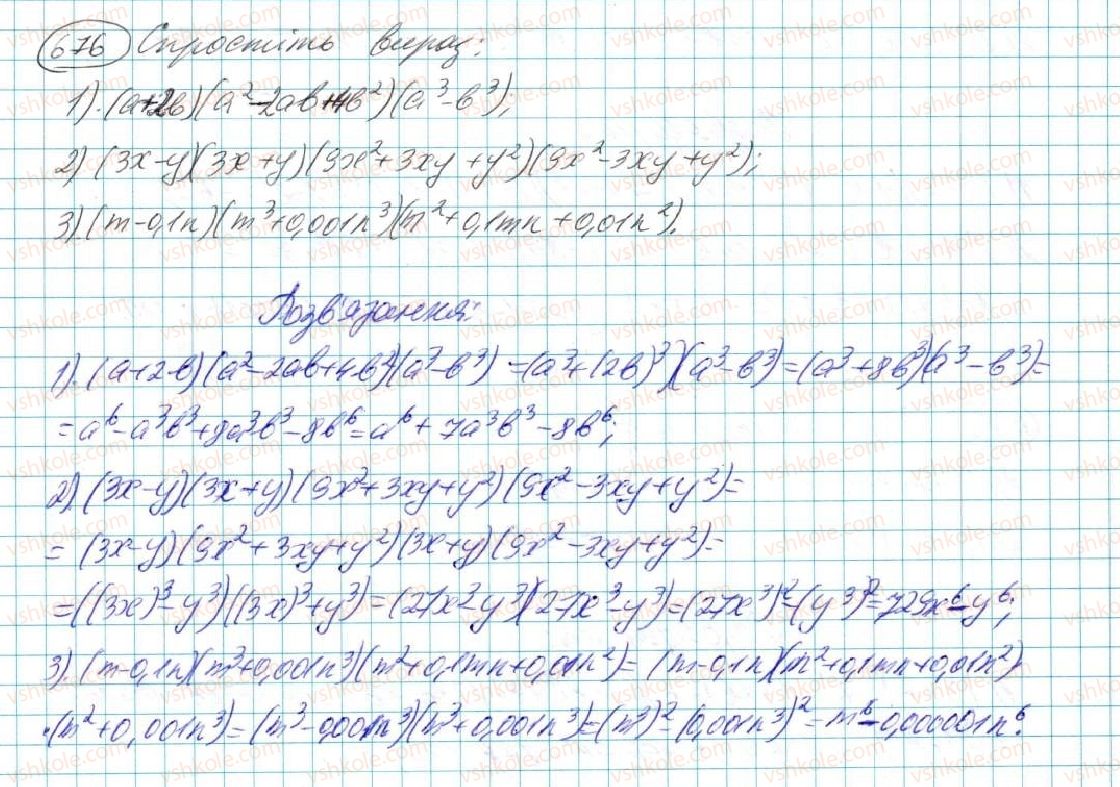 676 Спростіть вираз:
1). (a+2b)(a²-2ab+4b²)(a³-b³);
2) (3x-y)(3x+y)(9x²+3xy+y²)(9x²-3xy+y²);
3) (m-0,1n)(m³+0,001n³)(m²+0,1mn+0,01n²).
Розв'язання:
1). (a+2b)(a²-2ab+4b²)(a³-b³) =(a³+(2b)³)(a³-b³)=(a³+8b³)(a³-b³)=
=a⁶-a³b³+8a³b³-8b⁶=a⁶+7a³b³-8b⁶;
2) (3x-y)(3x+y)(9x²+3xy+y²)(9x²-3xy+y²)=
= (3x-y)(9x²+3xy+y²)(3x+y)(9x²-3xy+y²)=
=((3x)³-y³)((3x)³+y³)=(27x³-y³)(27x³-y³)=(27x³)²-(y³)²=729x⁶-y⁶;
3) (m-0,1n)(m³+0,001n³)(m²+0,1mn+0,01n²)= (m-0,1n)(m²+0,1mn+0,01n²)
·(m²+0,001n³)=(m³-0,001n³)(m³+0,001n³)=(m³)²-(0,001n³)²=m⁶-0,000001n⁶.